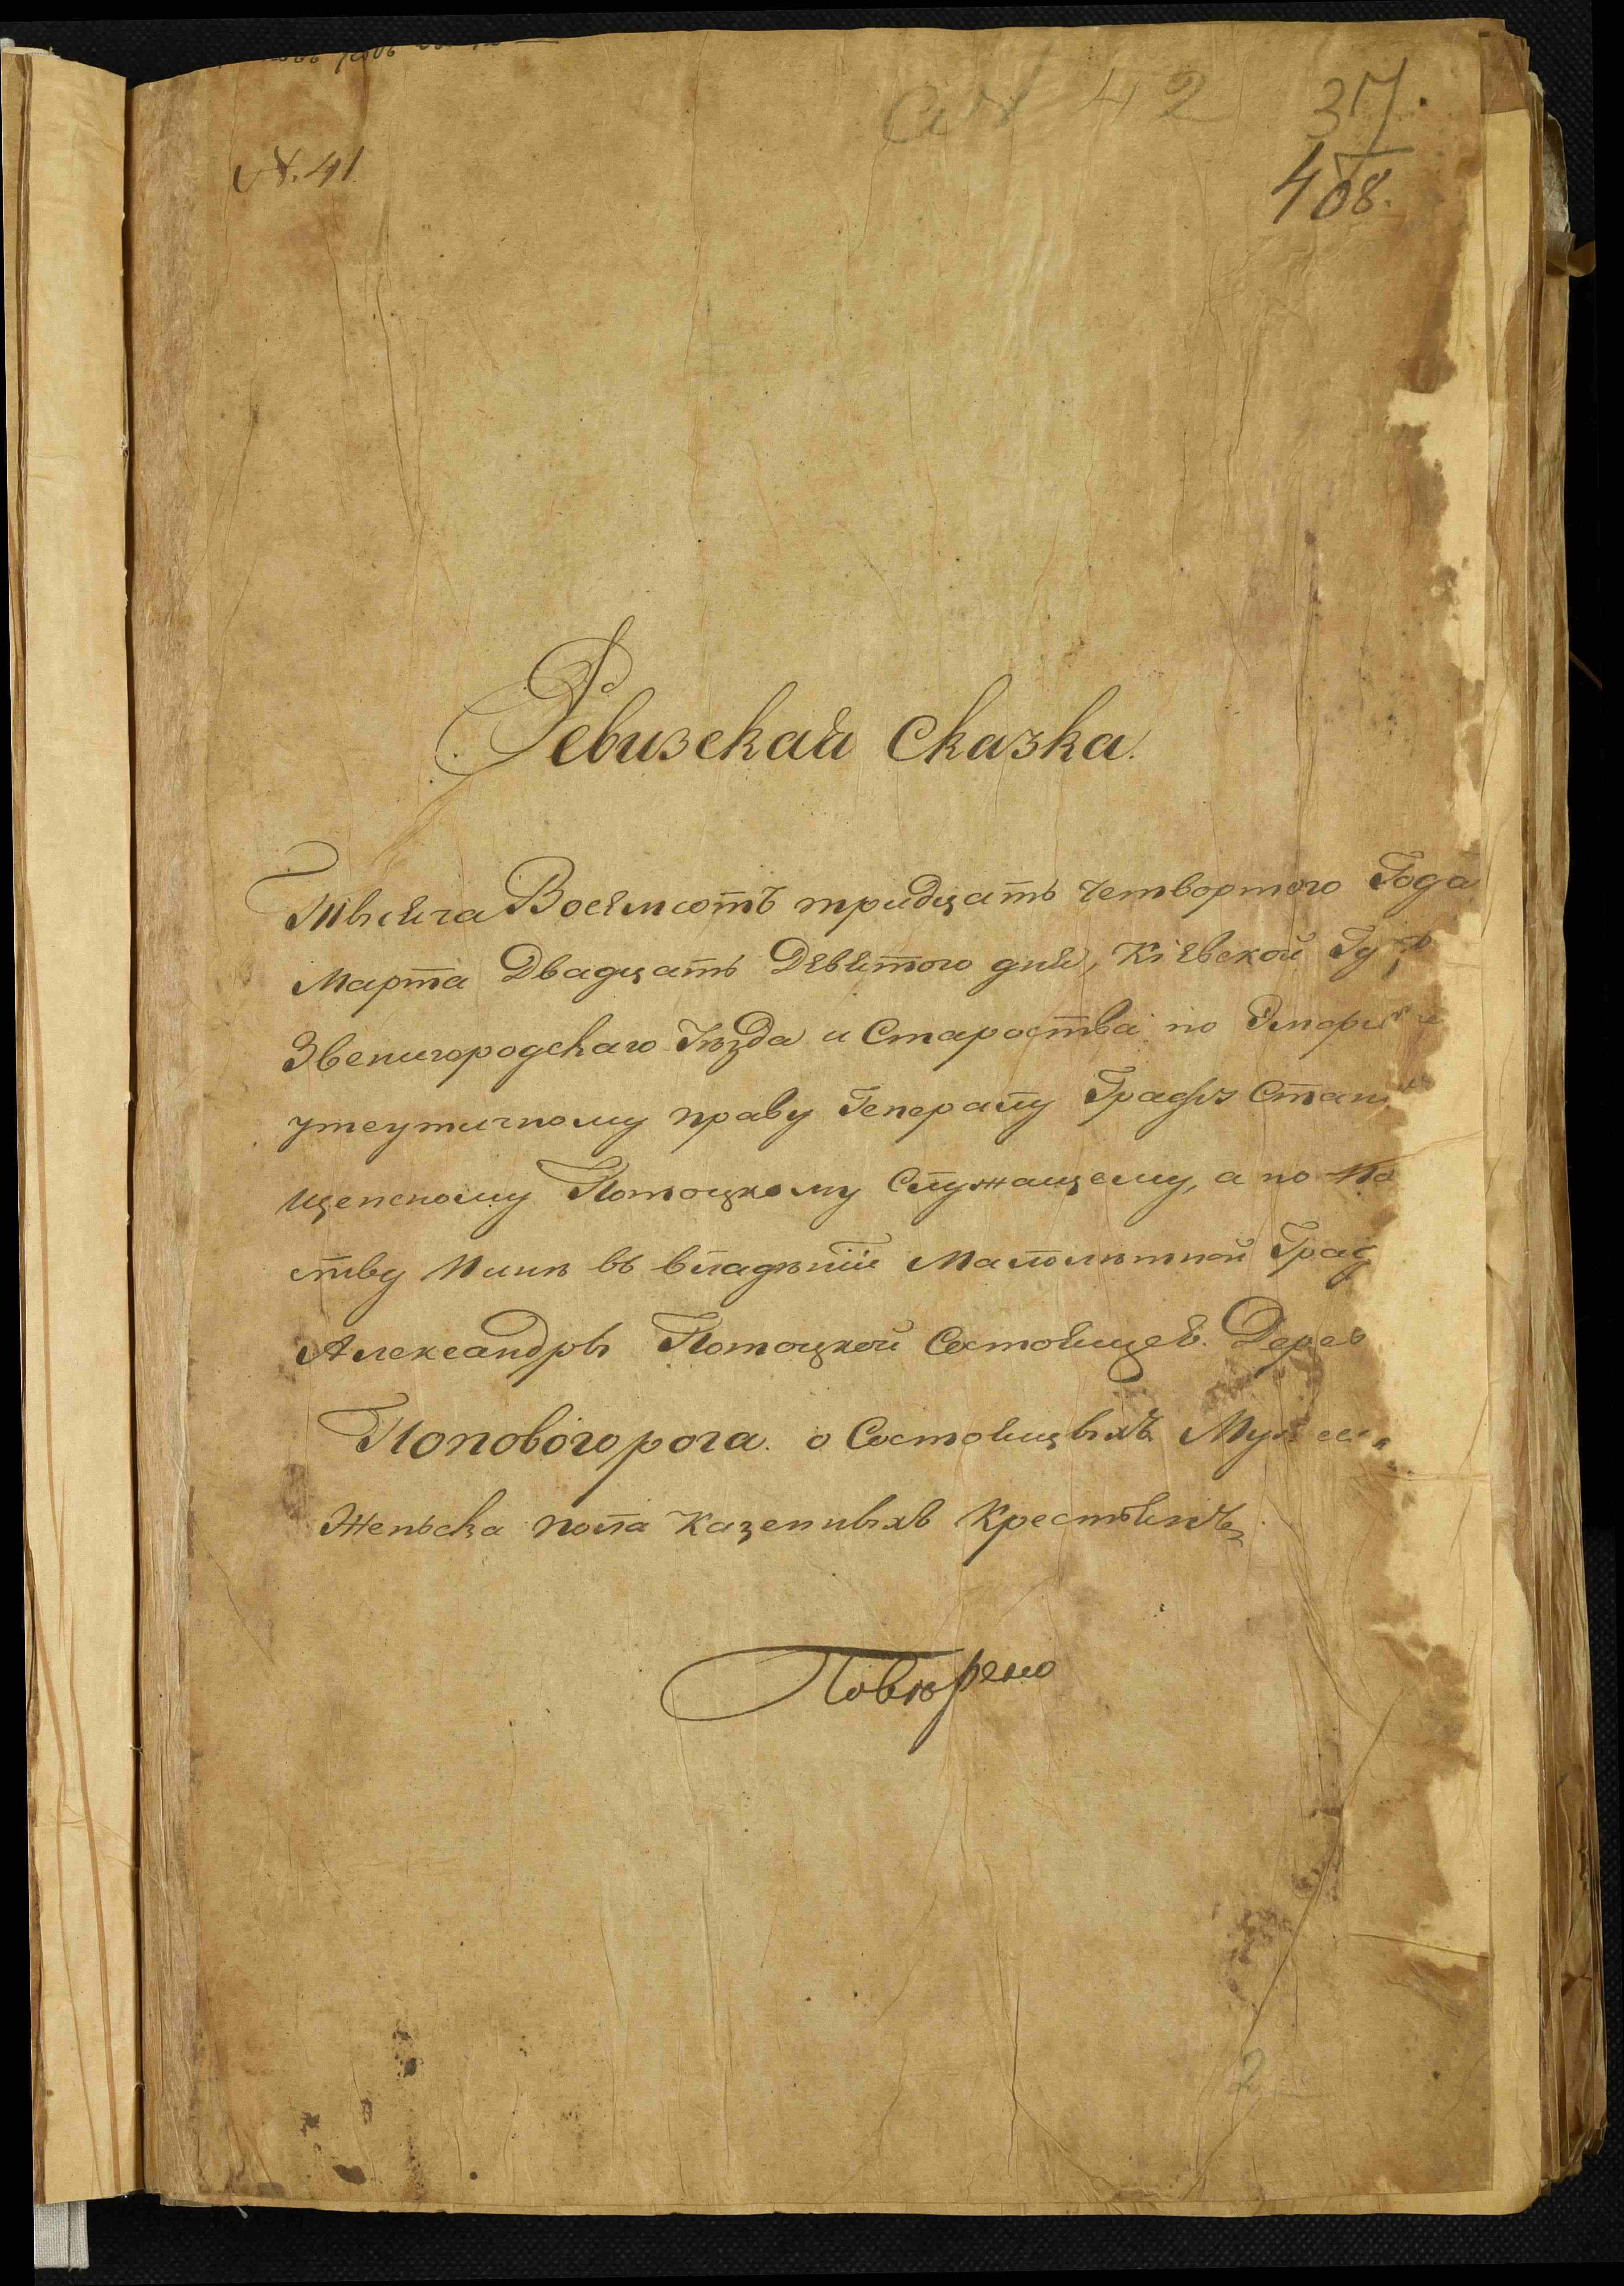 №. 41
42
37.
408.
Ревизская Сказка.
Тысяча Восемсотъ тридцать четвортого Года
Марта Двадцать Девятого дня, Кіевской Гу
Звенигородскаго Уѣзда и Староства по
праву Генералу Графу Стани
щенсному Потоцкому Служащему, а по
ству Нинѣ въ владѣніи Малолѣтной Граф
Александры Потоцкой Состоящей. Дерев
Поповогорога. о Состоящыхъ Мужеска
Женьска пола Казенныхъ Крестьянъ
Повѣрено
2